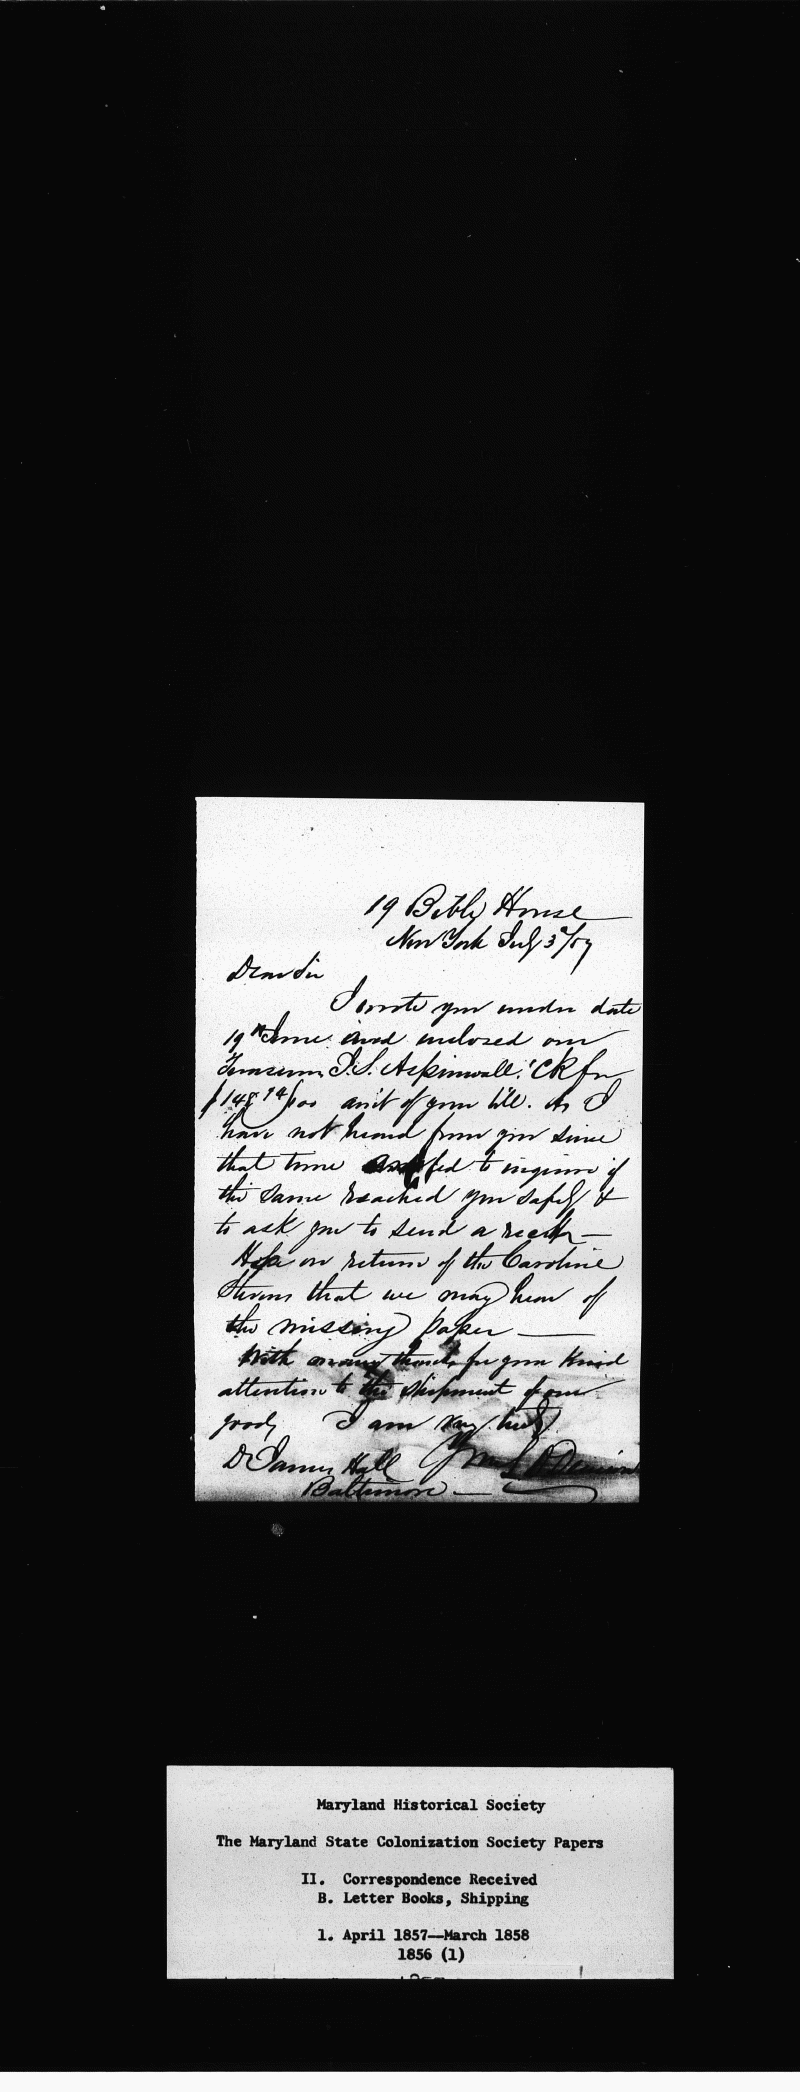 19 Bible House
New York July 3d/57
Dear Sir
I wrote you under date
19th June and enclosed our
Treasurer J.S. Aspinwall's Ck for
$148 74/100 am't of your bill. As I
have not heard from you since
that time to inquire if
the same reached you safely &
to ask you to send a rect —
Hope on return of the Caroline
Stevens that we may hear of
the missing paper —
With many thanks for your kind
attention to the shipment of our
goods I am very truly
Dr James Hall
Baltimore —
Maryland Historical Society
The Maryland State Colonization Society Papers
II. Correspondence Received
B. Letter Books, Shipping
1. April 1857--March 1858
1856 (1)